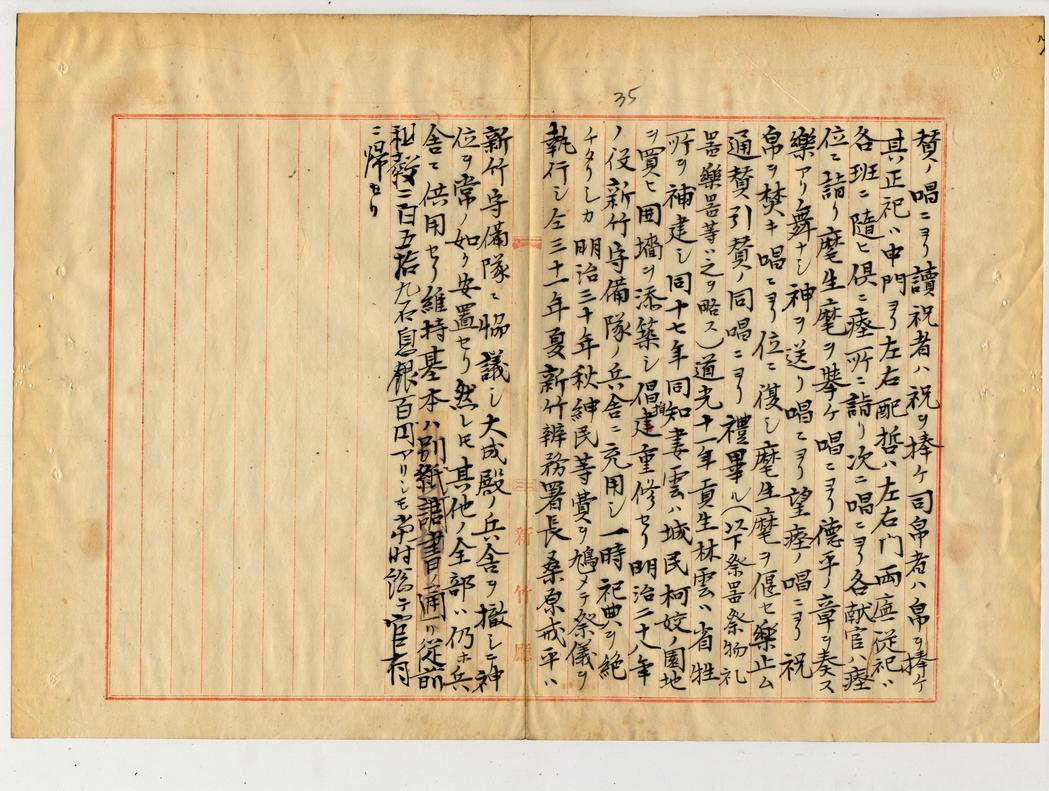 35
賛ノ唱ニヨリ讀祝者ハ祝ヲ捧ケ司帛者ハ帛ヲ捧ケ
其正祀ハ中門ヨリ左右配哲ハ左右門両廡從祀ハ
各班ニ隨ヒ倶ニ瘞所ニ詣リ次ニ唱ニヨリ各献官ハ瘞
位ニ詣リ麾生麾ヲ擧ケ唱ニヨリ德平ノ章ヲ奏ス
樂アリ舞ナシ神ヲ送リ唱ニヨリ望瘞ノ唱ニヨリ祝
帛ヲ焚キ唱ニヨリ位ニ復シ麾生麾ヲ偃セ樂止ム
通賛引賛ノ同唱ニヨリ禮畢ル(以下祭器祭物礼
器樂器等ハ之ヲ略ス)道光十一年貢生林雲ハ省牲
所ヲ補建シ同十七年同知婁雲ハ城民柯姣ノ園地
ヲ買ヒ囲墻ヲ添築シ倡建重修セリ明治二十八年
ノ役新竹守備隊ノ兵舎ニ充用シ一時祀典ヲ絶
チタリシカ明治三十年秋紳民等費ヲ鳩メテ祭儀ヲ
執行シ仝三十一年夏新竹辨務署長桑原戒平ハ
新竹廳
新竹守備隊ニ協議シ大成殿ノ兵舎ヲ撤シニ神
位ヲ常ノ如ク安置セリ然レモ其他ノ全部ハ仍ホ兵
舎ニ供用セリ維持基本ハ別紙諸書通リ從前
租穀二百五拾九石息銀百円アリシモ當時総テ官有
ニ帰セリ